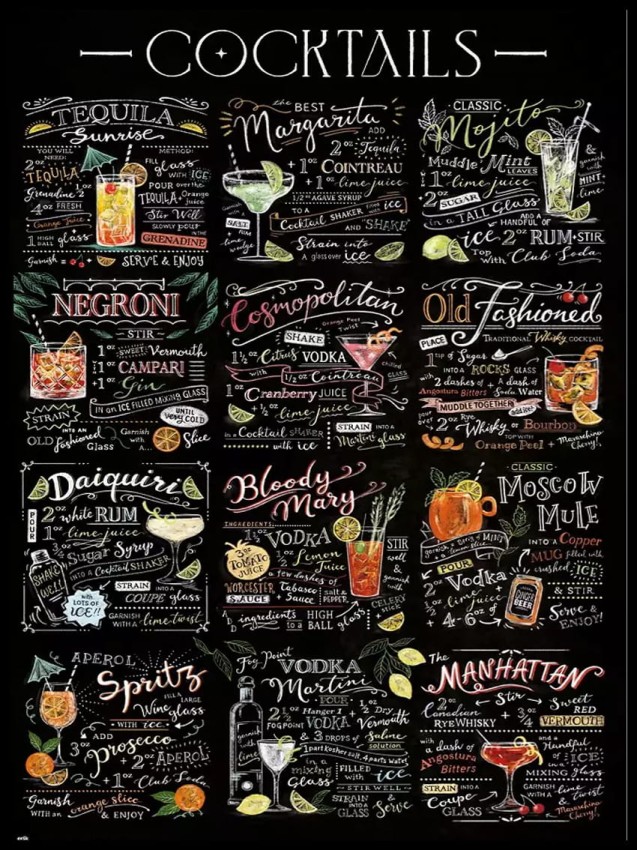 COCKTAILS
TEQUILA
Sunrise
YOU WILL NEED:
2oz TEQUILA
Grenadine
4oz FRESH
Orange Juice
1 HIGH BALL glass
METHOD:
FILL glass
WITH ICE
POUR over the
TEQUILA + Orange Juice
Stir Well
SLOWLY pour
IN THE
GRENADINE
Garnish =
SERVE & ENJOY
the BEST
Margarita
ADD
2oz Tequila
+ 1oz COINTREAU
+ 1oz lime juice
1/2oz AGAVE SYRUP
TO A
Cocktail SHAKER with ice
AND SHAKE
SALT
RIM
lime wedge
Strain into
A glass over ice
CLASSIC
Mojito
Muddle Mint LEAVES
1oz lime juice
2oz SUGAR
in a TALL Glass
ADD A
HANDFUL OF
ice 2oz RUM + STIR
Top with Club Soda
& garnish with
MINT +
lime
NEGRONI
STIR
1oz SWEET Vermouth
1oz CAMPARI
+ 1oz Gin
IN an ICE FILLED MIXING GLASS
UNTIL Very COLD
STRAIN
INTO AN
OLD fashioned Glass
Garnish WITH A
Slice
Cosmopolitan
Orange Peel Twist
SHAKE
1 1/2oz Citrus VODKA
with 1/2oz Cointreau
1oz Cranberry JUICE
+ 1/2oz lime juice
in a Cocktail SHAKER
with ice
STRAIN INTO A
chilled
Martini glass
Old Fashioned
TRADITIONAL Whisky COCKTAIL
PLACE
1 tsp of Sugar
INTO A ROCKS GLASS
with 2 dashes of + A dash of
Angostura Bitters Soda Water
MUDDLE TOGETHER
add ice!
pour over
2oz Rye Whisky or Bourbon
TOP WITH
Orange Peel + Maraschino Cherry!
Daiquiri
POUR
2oz white RUM
1oz lime juice
3/4oz Sugar Syrup
INTO A Cocktail SHAKER
SHAKE WELL
with LOTS OF ICE!!
STRAIN INTO A
COUPE glass
GARNISH WITH A lime twist
Bloody Mary
INGREDIENTS:
1oz VODKA
3oz TOMATO JUICE
1/2oz Lemon Juice
a few dashes of
WORCESTER SAUCE
Tabasco Sauce
salt & PEPPER
ADD ingredients to a HIGH BALL glass
STIR well
& garnish with
CELERY
CLASSIC
MOSCOW MULE
garnish a sprig of MINT
+ lemon slice
INTO A Copper
MUG filled with
crushed ICE
& STIR
POUR
2oz Vodka
+ 1/2oz lime juice
+ 4-6oz of
GINGER BEER
Serve &
ENJOY!
APEROL
Spritz
FILL A LARGE
Wine glass
WITH ice
ADD
3oz Prosecco
+ 2oz APEROL
+ 1oz Club Soda
Garnish WITH AN orange slice
& ENJOY
Fog Point VODKA
Martini
POUR
2 1/2oz Hangar 1 FOGPOINT VODKA
1/2oz Dry Vermouth
& 3 DROPS of Saline solution
1 part kosher salt, 4 parts water
in a mixing Glass
FILLED with ice
STIR WELL
garnish with lime
STRAIN INTO A GLASS
& Serve
The
MANHATTAN
Stir
2oz Canadian
RYE WHISKY
+ 3/4oz
Sweet RED
VERMOUTH
with a dash of
Angostura Bitters
and a Handful of ICE
IN A
MIXING glass
STRAIN INTO A
Coupe GLASS
GARNISH WITH A lime twist
& Maraschino Cherry!